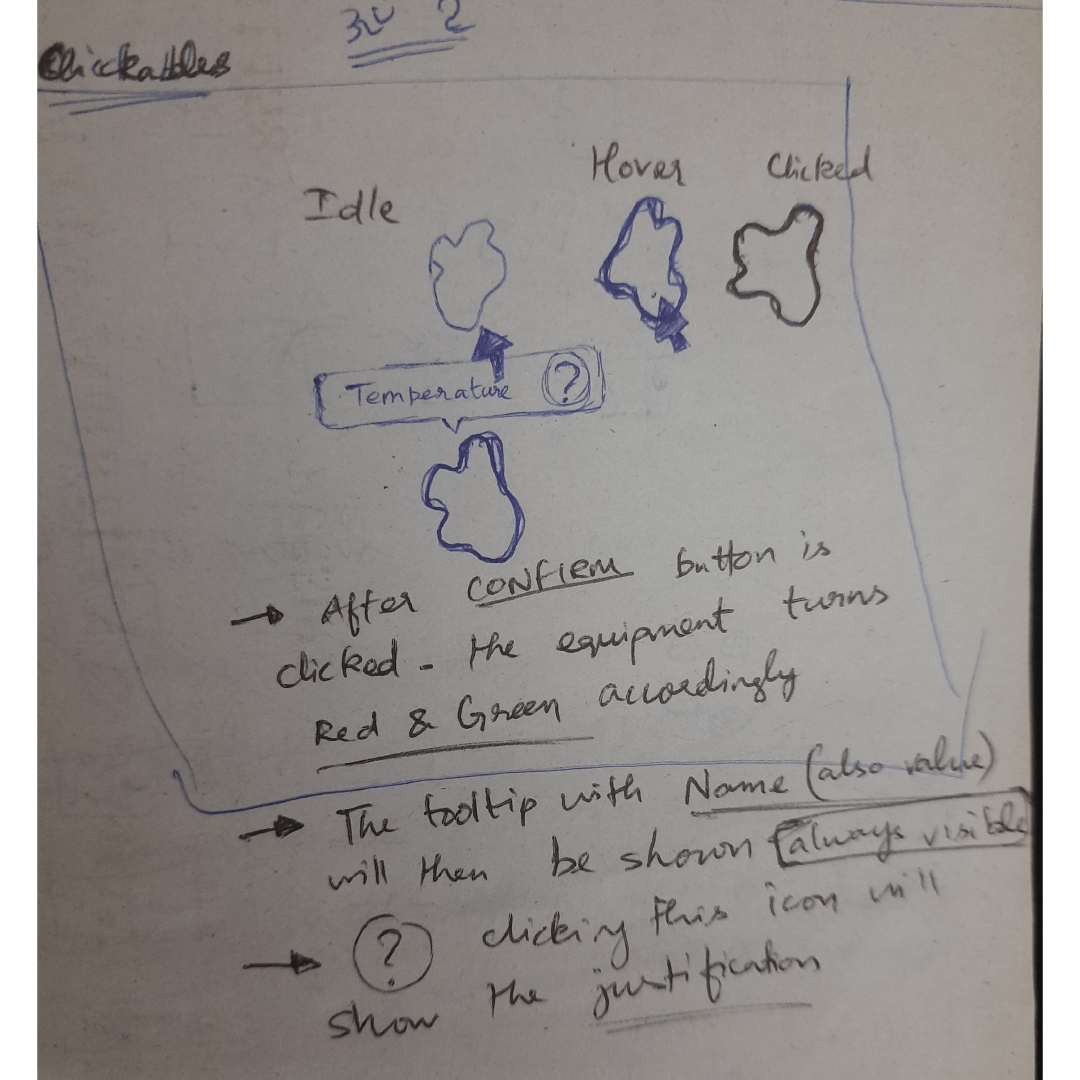 Clickables
Idle
Hover
Clicked
Temperature ?
→ After CONFIRM button is
clicked - the equipment turns
Red & Green accordingly
→ The tooltip with Name (also value)
will then be shown (always visible
→ ? clicking this icon will
show the justification